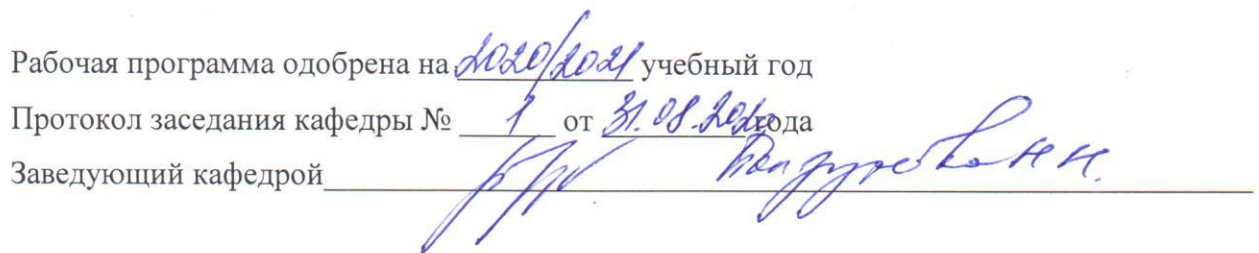 Рабочая программа одобрена на 2020/2021 учебный год
Протокол заседания кафедры № 1 от 31.08.2020 года
Заведующий кафедрой Н.Н.